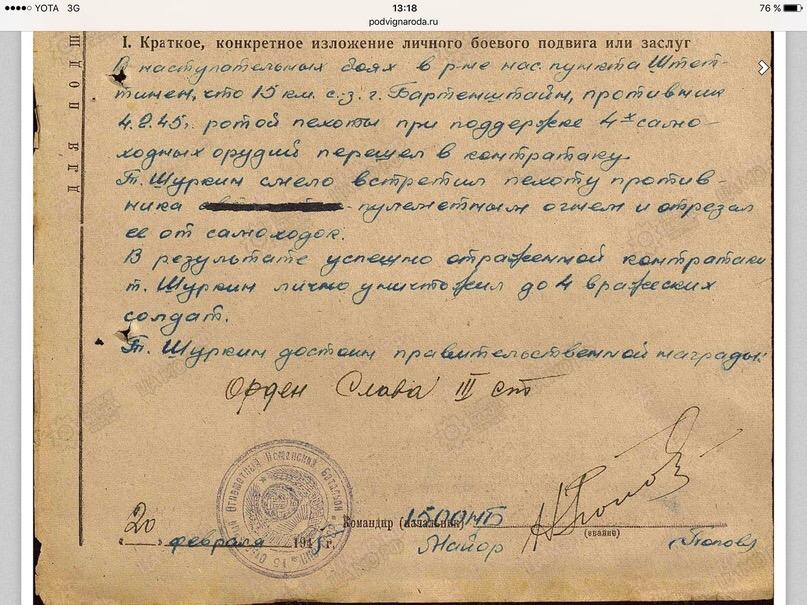 YOTA 3G 13:18 76 %
podvignaroda.ru
I. Краткое, конкретное изложение личного боевого подвига или заслуг
В наступательных боях в р-не нас. пункта Штет-
тинен, что 15 км. с.з. г. Бартенштайн, противник
4.2.45г. ротой пехоты при поддержке 4х само-
ходных орудий перешел в контратаку.
Т. Шуркин смело встретил пехоту против-
ника пулеметным огнем и отрезал
ее от самоходок.
В результате успешно отраженной контратаки
т. Шуркин лично уничтожил до 4 вражеских
солдат.
Т. Шуркин достоин правительственной награды:
Орден Слава III ст
Командир (начальник) 15 ООПТБ
(звание)
"20" февраля 1945 г. Майор Попов